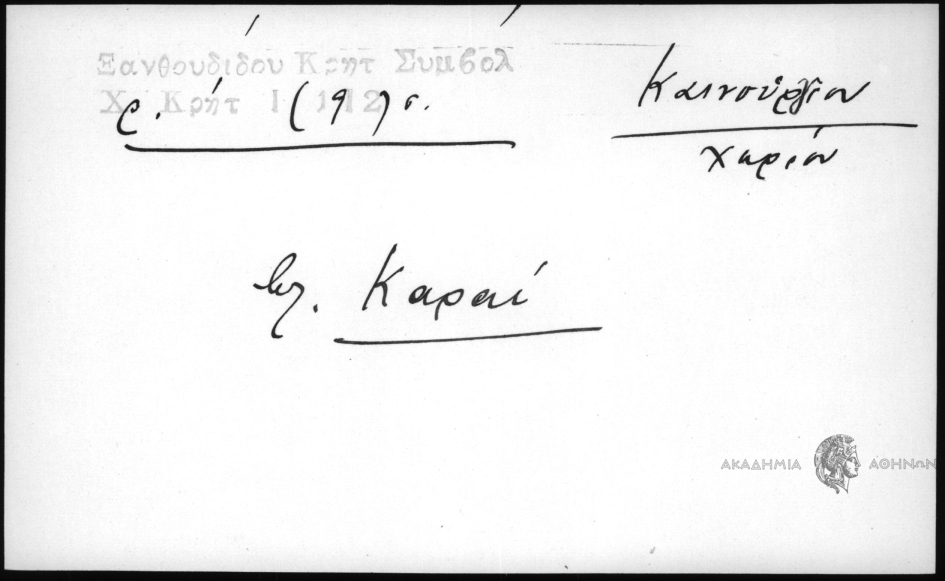 Ξανθουδιδου Κρητ Συμβολ
Χρ. Κρήτ 1 112
Καινούργιον
χωρίον
βλ. Καραί
ΑΚΑΔΗΜΙΑ ΑΘΗΝΩΝ